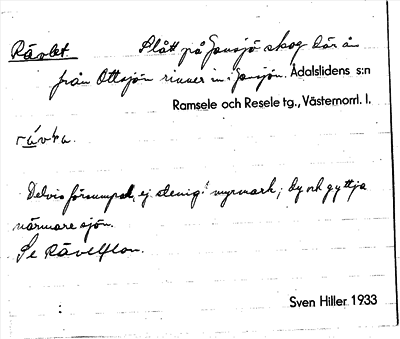 Rävlet Slått på Jansjö skog där ån
från Ottsjön rinner in i Jansjön. Ådalslidens s:n
Ramsele och Resele tg., Västernorrl. l.
rävka.
Delvis försumpad, ej stenig myrmark; dy och gyttja
närmare sjön.
Se Rävelflon.
Sven Hiller 1933